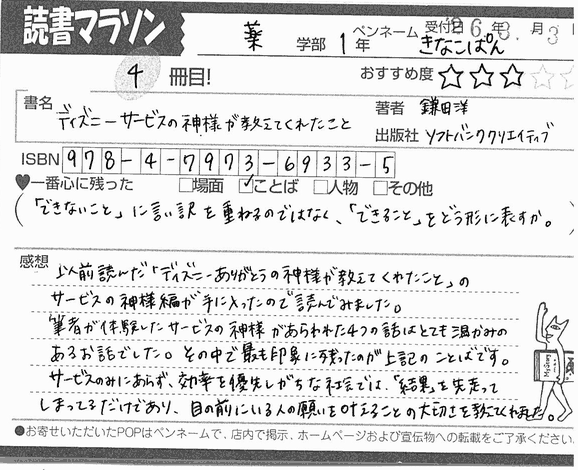 読書マラソン
薬 学部 1年 ペンネーム きなこぱん
受付日 26年 3月 3
4 冊目! おすすめ度 ☆☆☆☆
書名 ディズニー サービスの神様が教えてくれたこと
著者 鎌田洋
出版社 ソフトバンククリエイティブ
ISBN 978-4-7973-6933-5
♥一番心に残った □場面 ☑ことば □人物 □その他
(「できないこと」に言い訳を重ねるのではなく、「できること」をどう形に表すか。)
感想
以前読んだ「ディズニーありがとうの神様が教えてくれたこと」の
サービスの神様編が手に入ったので読んでみました。
筆者が体験したサービスの神様があらわれた4つの話はとても温かみの
あるお話でした。その中で最も印象に残ったのが上記のことばです。
サービスのみにあらず、効率を優先しがちな社会では、「結果」を先走って
しまってるだけであり、目の前にいる人の願いを叶えることの大切さを教えてくれました。
●お寄せいただいたPOPはペンネームで、店内で掲示、ホームページおよび宣伝物への転載をご了承ください